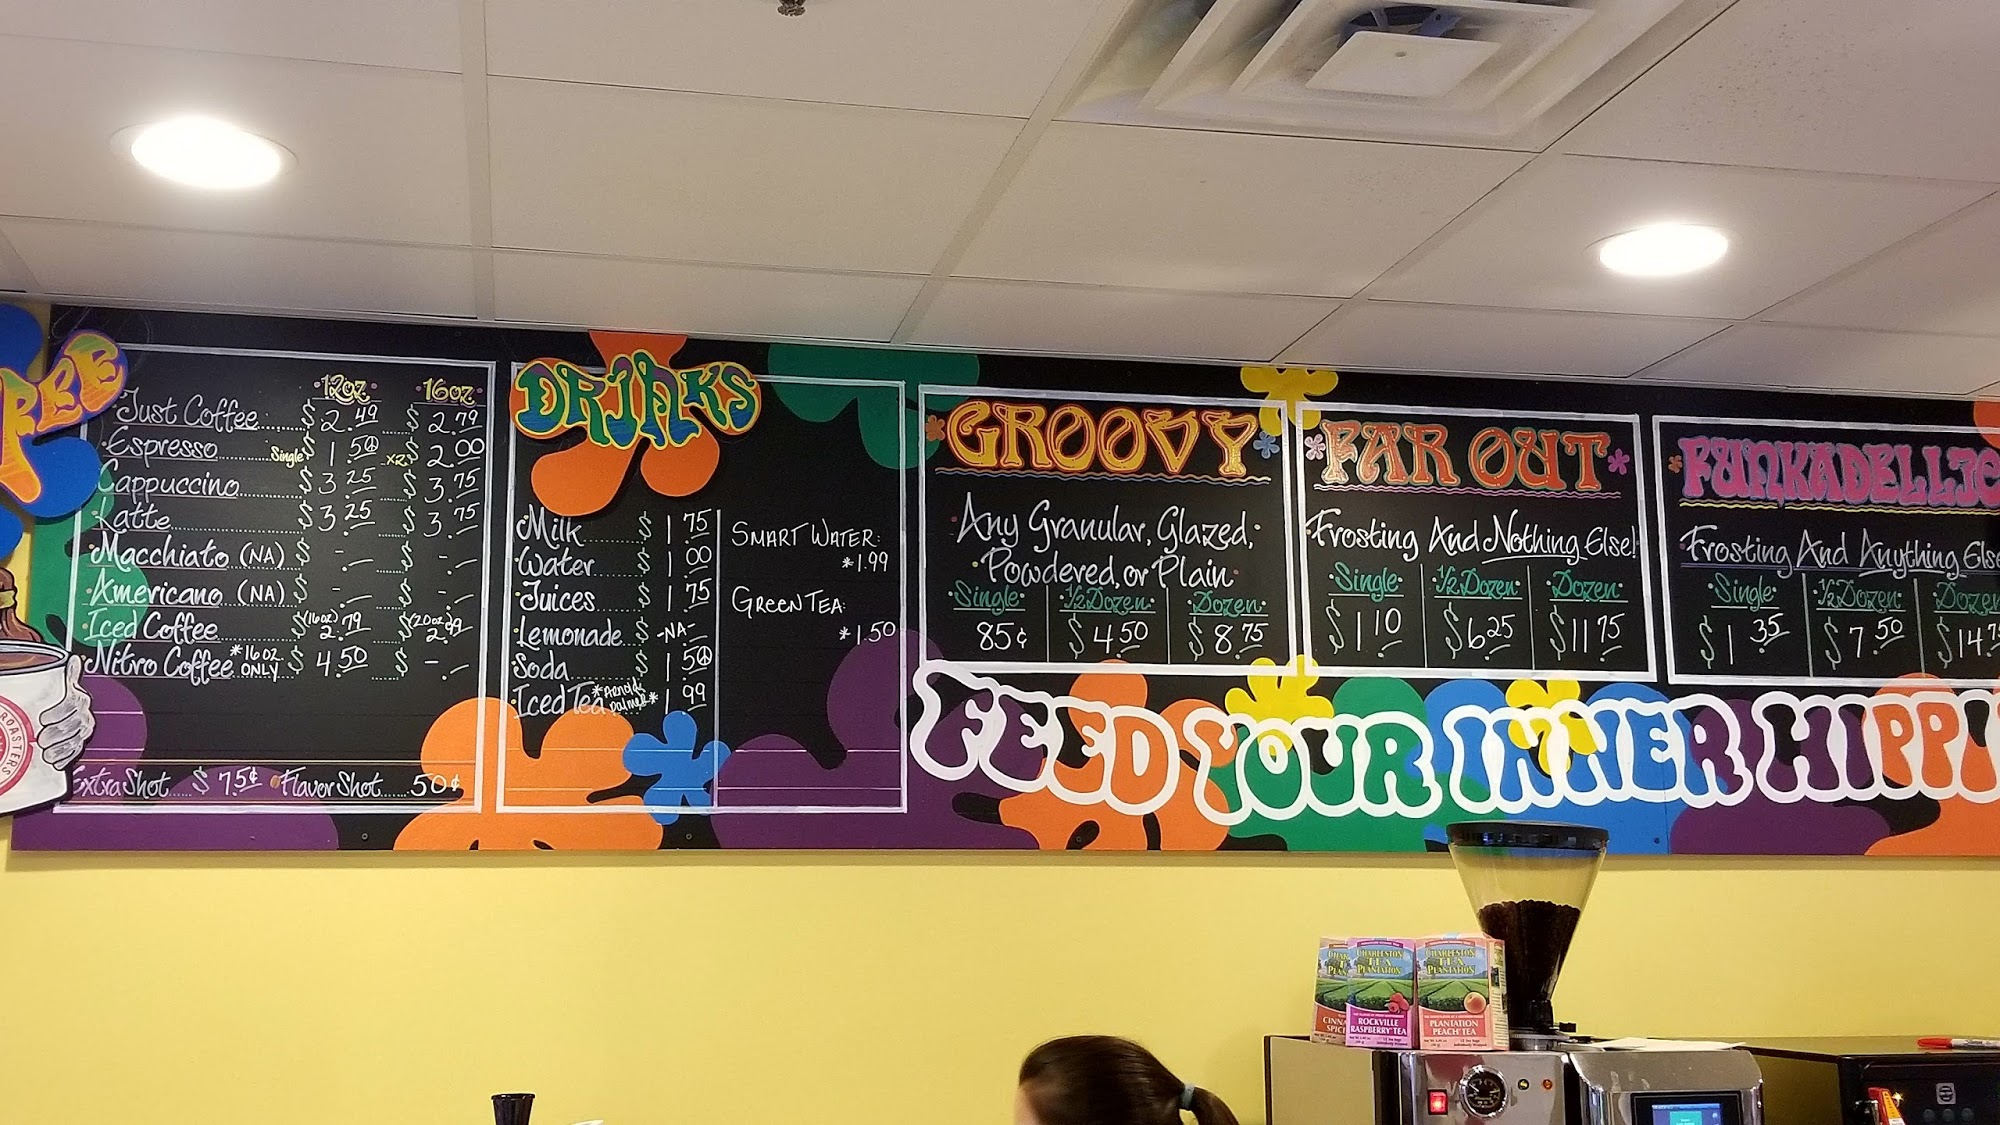 12oz. 16oz.
Just Coffee $ 2.49 $ 2.79
Espresso Single $ 1.50 x2 $ 2.00
Cappuccino $ 3.25 $ 3.75
Latte $ 3.25 $ 3.75
Macchiato (NA) $ -.- $ -.-
Americano (NA) $ -.- $ -.-
Iced Coffee $ (16oz) 2.79 $ (20oz)
Nitro Coffee *16oz ONLY $ 4.50 $ -.-
Extra Shot $ 75¢ Flavor Shot 50¢
ROASTERS
DRINKS
Milk $ 1.75
Water $ 1.00
Juices $ 1.75
Lemonade -NA-
Soda $ 1.50
Iced Tea *Arnold Palmer* $ 1.99
SMART WATER:
*1.99
GREEN TEA:
*1.50
GROOVY
Any Granular, Glazed,
Powdered, or Plain
Single ½ Dozen Dozen
85¢ $4.50 $8.75
FAR OUT
Frosting And Nothing Else!
Single ½ Dozen Dozen
$1.10 $6.25 $11.75
FUNKADELLIC
Frosting And Anything Else
Single ½ Dozen Dozen
$1.35 $7.50 $14.
FEED YOUR INNER HIPPI
CHARLESTON
TEA
PLANTATION
ROCKVILLE
RASPBERRY TEA
CHARLESTON
TEA
PLANTATION
PLANTATION
PEACH TEA